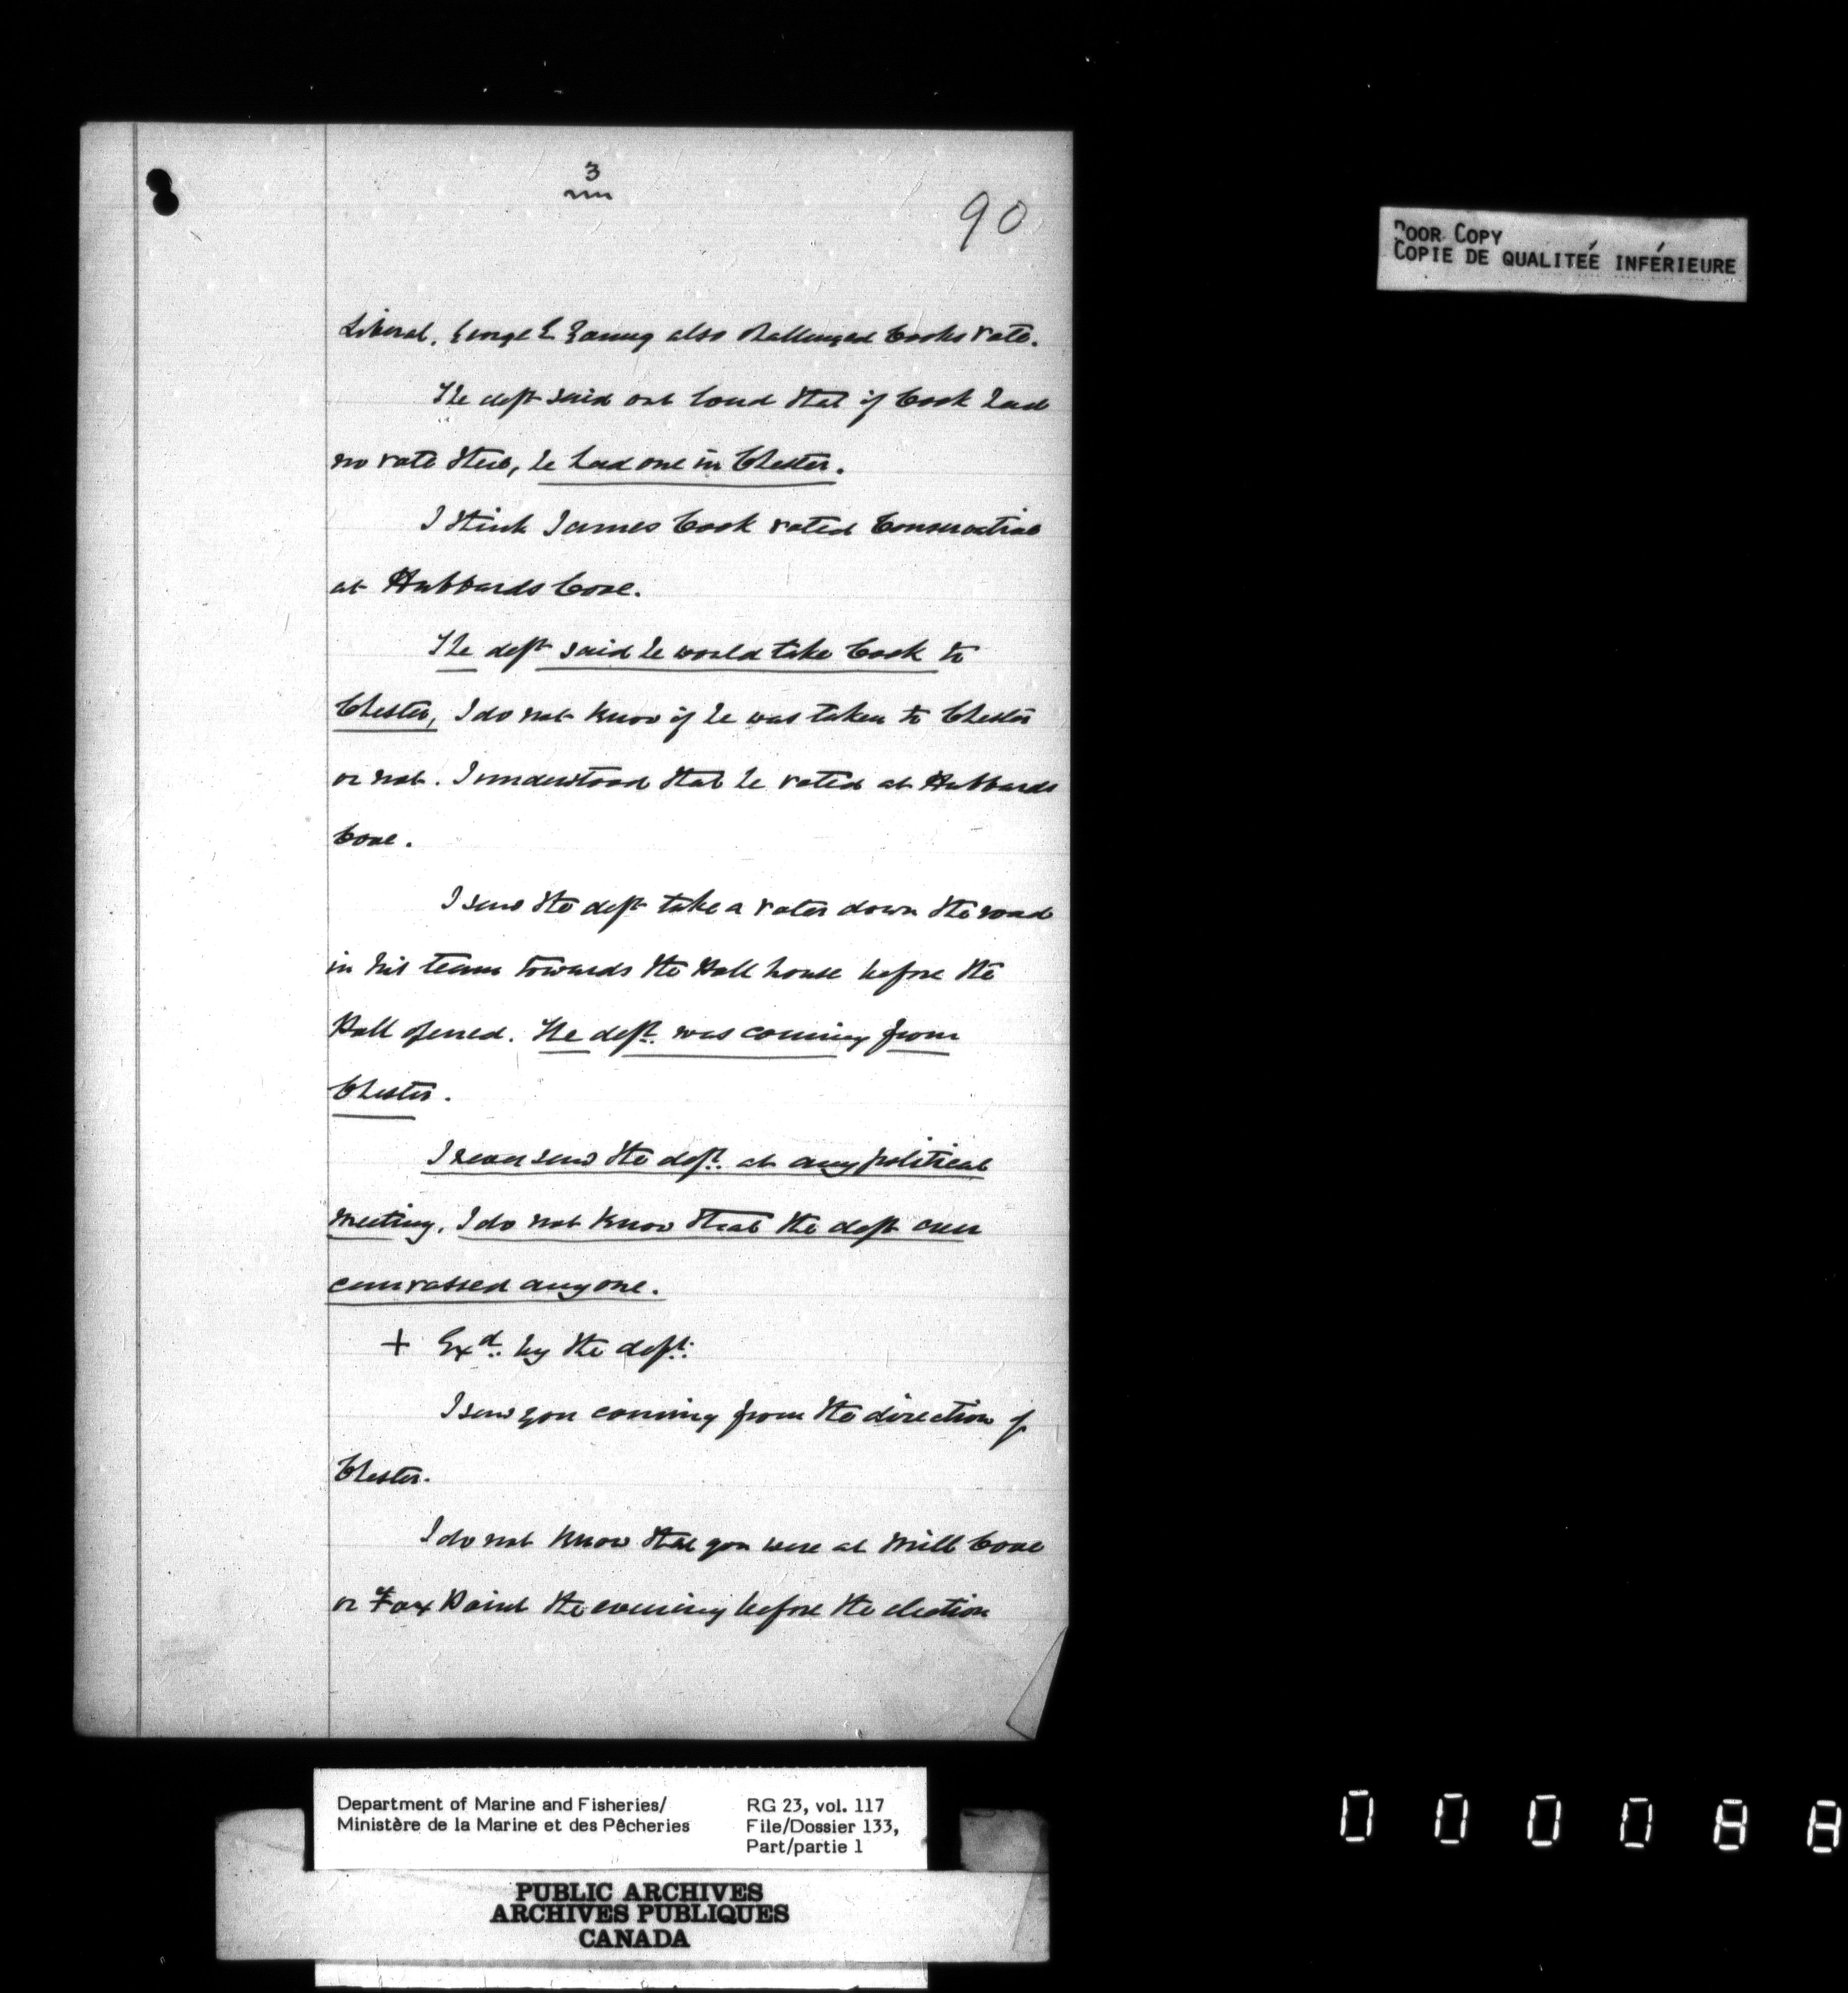 3
90
Liberal. George E Young also challenged Cooks vote.
The deft said out loud that if Cook had
no vote there, he had one in Chester.
I think James Cook voted Conservative
at Hubbards Cove.
The deft said he would take Cook to
Chester, I do not know if he was taken to Chester
or not. I understood that he voted at Hubbards
Cove.
I saw the deft take a voter down the road
in his team towards the Poll house before the
Poll opened. The deft. was coming from
Chester.
I never saw the deft. at any political
meeting. I do not know that the deft ever
canvassed any one.
+ Exd. by the deft:
I saw you coming from the direction of
Chester.
I do not know that you were at Mill Cove
or Fox Point the evening before the election
POOR COPY
COPIE DE QUALITÉE INFÉRIEURE
Department of Marine and Fisheries/
Ministère de la Marine et des Pêcheries
RG 23, vol. 117
File/Dossier 133,
Part/partie 1
PUBLIC ARCHIVES
ARCHIVES PUBLIQUES
CANADA
000088